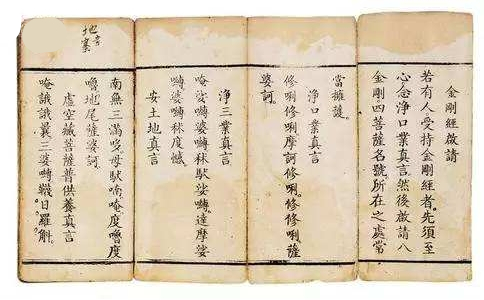 金剛經啟請
若有人受持金剛經者。先須至
心念淨口業真言。然後啟請八
金剛四菩薩名號所在之處常
當擁護。
淨口業真言
修唎修唎摩訶修唎。修修唎薩
婆訶。
淨三業真言
唵娑嚩婆嚩秫馱娑嚩。達摩娑
嚩婆嚩秫度憾
安土地真言
南無三滿哆母馱喃唵度嚕度
嚕地尾薩婆訶
虛空藏菩薩普供養真言
唵誐誐曩三婆嚩韈日羅斛。
地